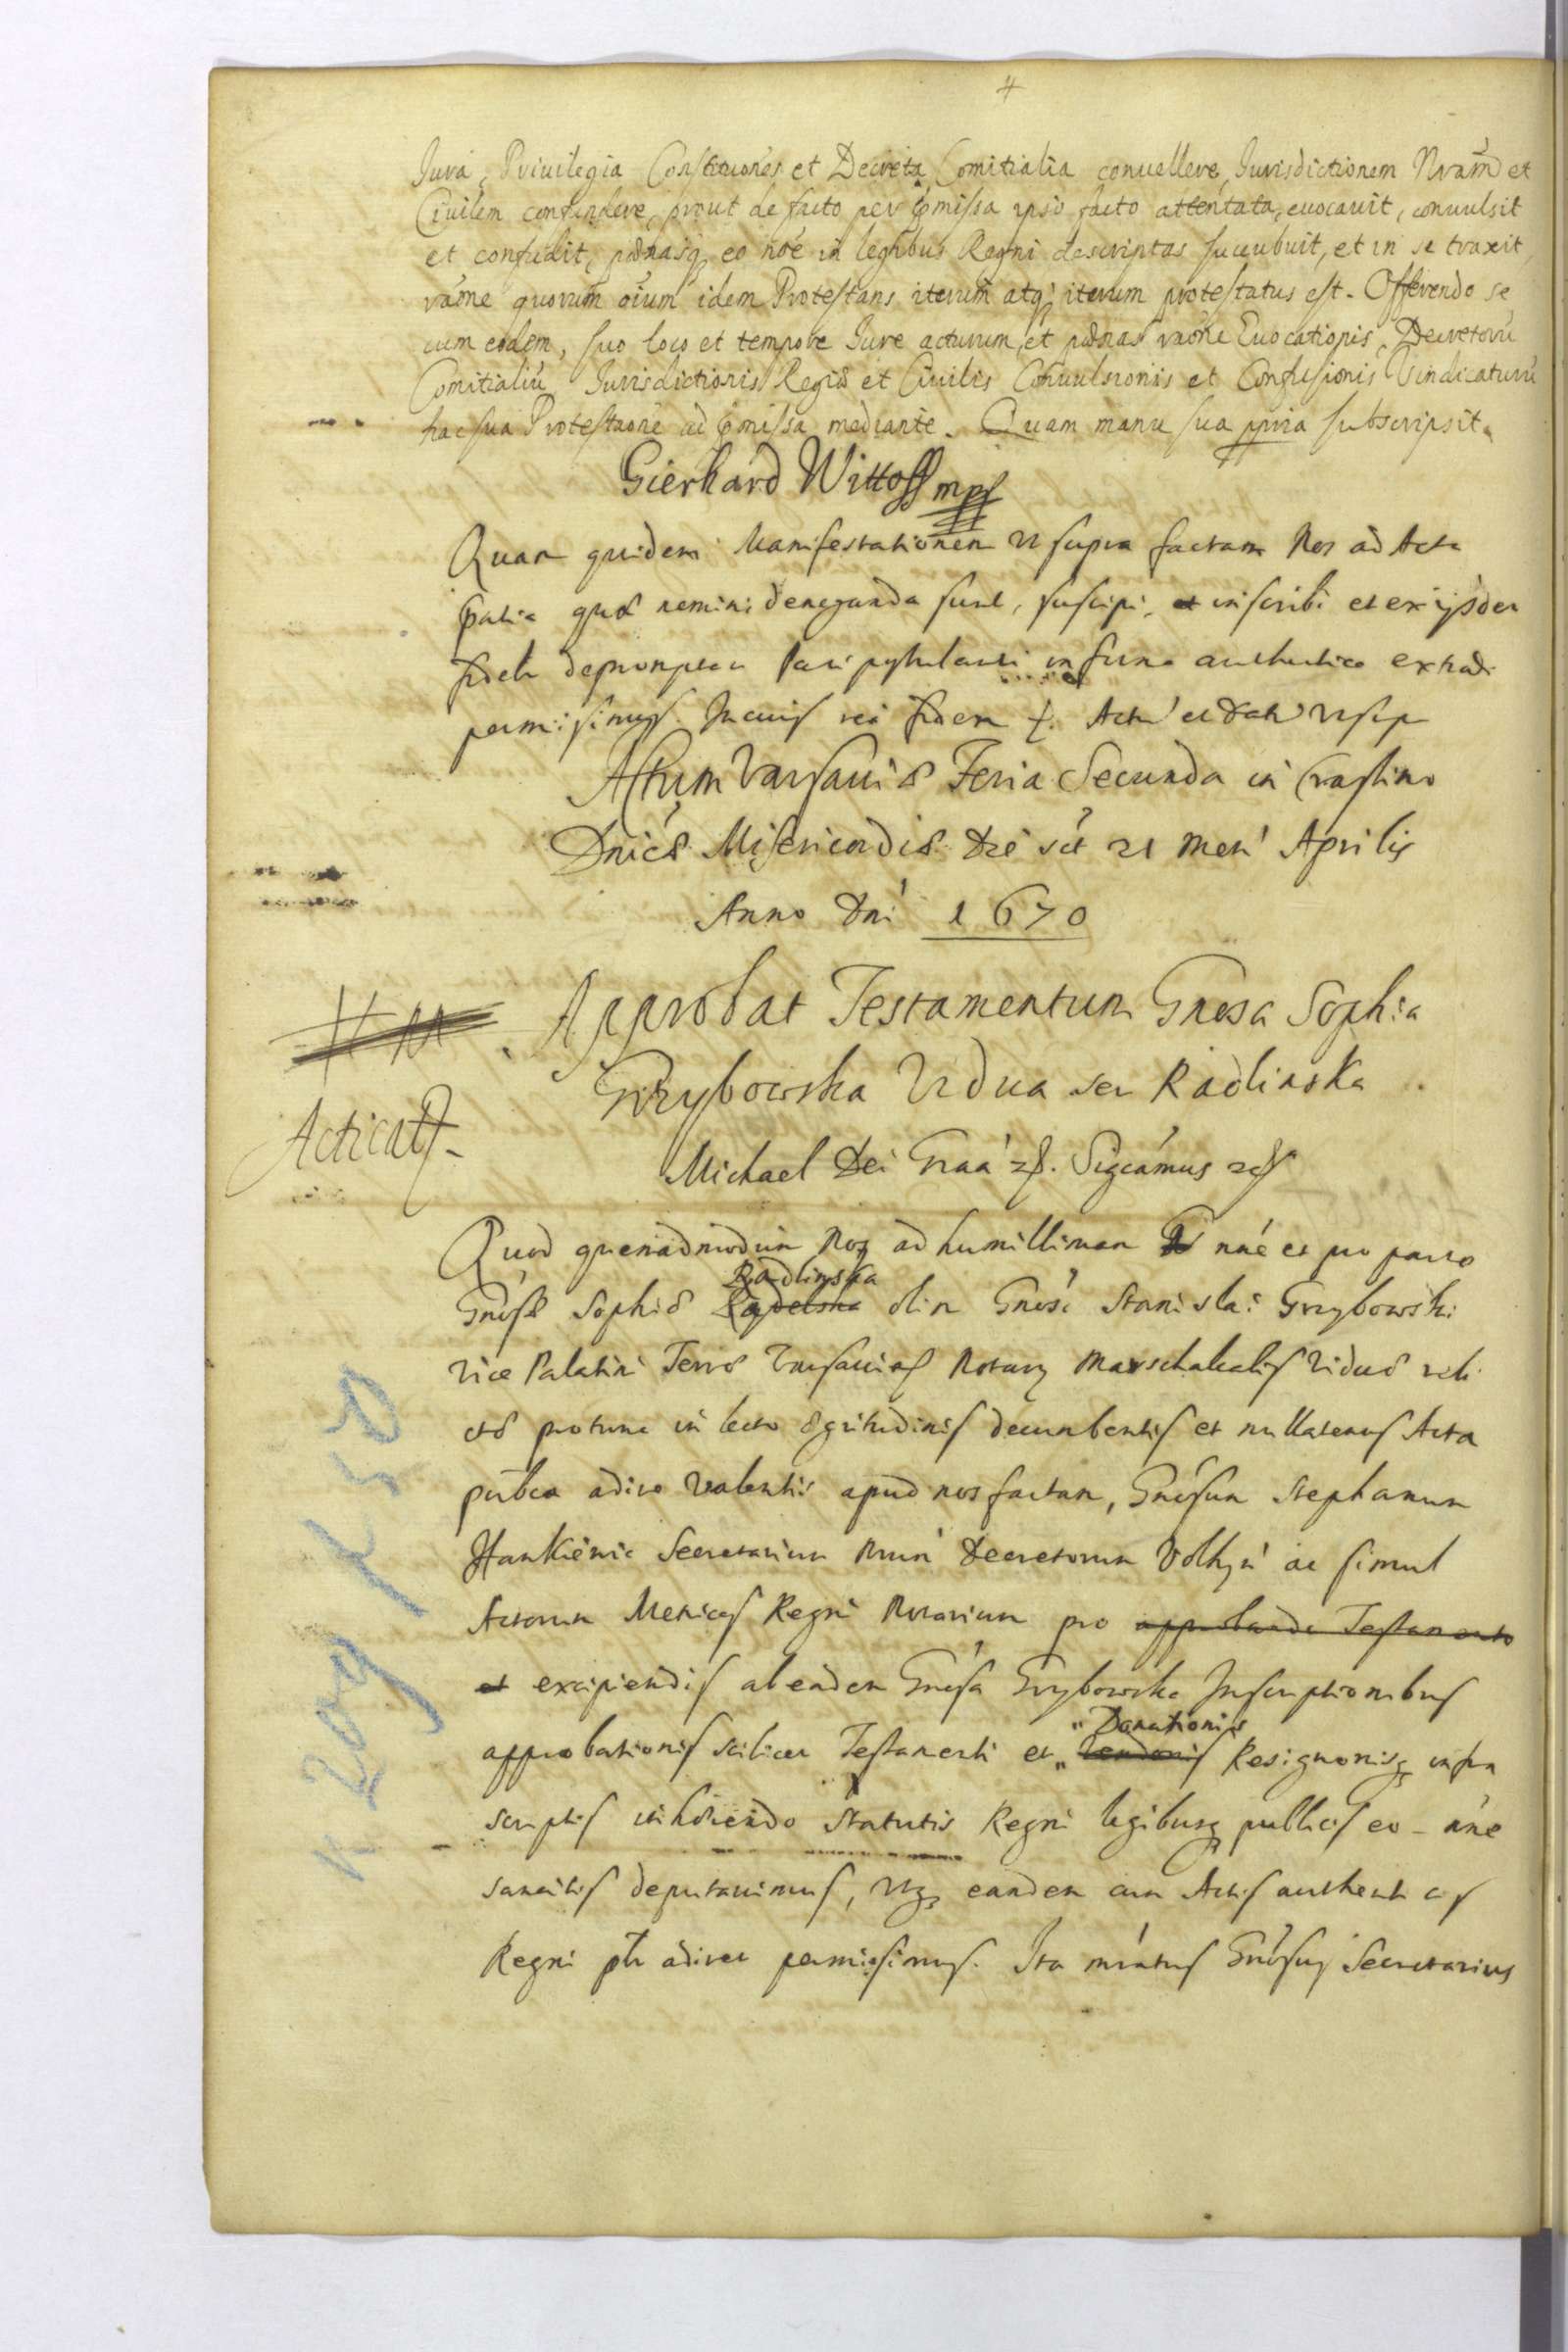 4
Jura, Priuilegia Constituões et Decreta Comitialia conuellere, Jurisdictionem Nram et
Ciuilem confundere, prout de facto per pmissa ipso facto attentata, euocauit, conuulsit
et confudit, pœnasq eo noe in legibus Regni descriptas succubuit, et in se traxit,
raõne quorum oium idem Protestans iterum atq iterum protestatus est. Offerendo se
cum eodem, suo loco et tempore Jure acturum, et pœnas raõne Euocationis, Decretorũ
Comitialiũ Jurisdictionis Regiæ et Ciuilis Conuulsionis et Confusionis Vindicaturũ
hac sua Protestaone ad pmissa mediante. Quam manu sua ppria subscripsit.
Gierhard Wittoff mpp
Quam quidem Manifestationem ut supra factam Nos ad Acta
pntia quæ nemini deneganda sunt, suscipi, et inscribi et ex ijsdem
fideli depromptam Parti postulanti in forma authentica extradi
permisimus. In cuius rei fidem f. Actũ et Datũ ut sup
Actum Varsauiæ Feria Secunda in Crastino
Dnicæ Misericordiæ Die sct 21 Men Aprilis
Anno Dni 1670
Approbat Testamentum Gnosa Sophia
Grzybowska Vidua seu Radlinska
Acticat
Michael Dei Graa zf. Sigcamus zcf
Quod quemadmodum Nos ad humillimam nne et pro parte
Radlinska
Gnosæ Sophiæ olim Gnosi Stanislai Grzybowski
Vice Palatini Terræ Varsauien Notary Marschalcalis Viduæ reli
ctæ protunc in lecto ægritudinis decumbentis et nullatenus Acta
publca adire valentis apud nos factam, Gnosum Stephanum
Hankiewic Secretarium Nrum Decretorum Volhyn ac simul
Actorum Metrices Regni Notarium pro approbando Testamento
et excipiendis ab eadem Gnosa Grzybowska Inscriptionibus
" Donationis
approbationis scilicet Testamenti et " Resignonisq infra
scriptis inhærendo Statutis Regni legibusq publicis eo-nne
sancitis deputauimus, Utq eandem cum Actis authenticis
Regni pti adiret permisimus. Ita mratus Gnosus Secretarius